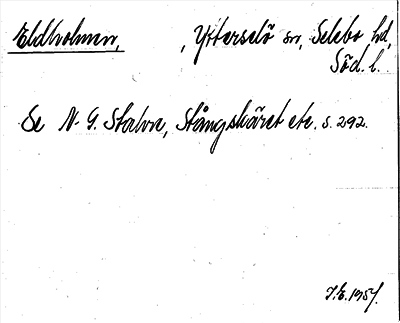 Eldholmen, , Ytterselö sn, Selebo hd,
Söd. l.
Se N. G. Stahre, Stångskäret etc. s. 292.
J.E. 1957.